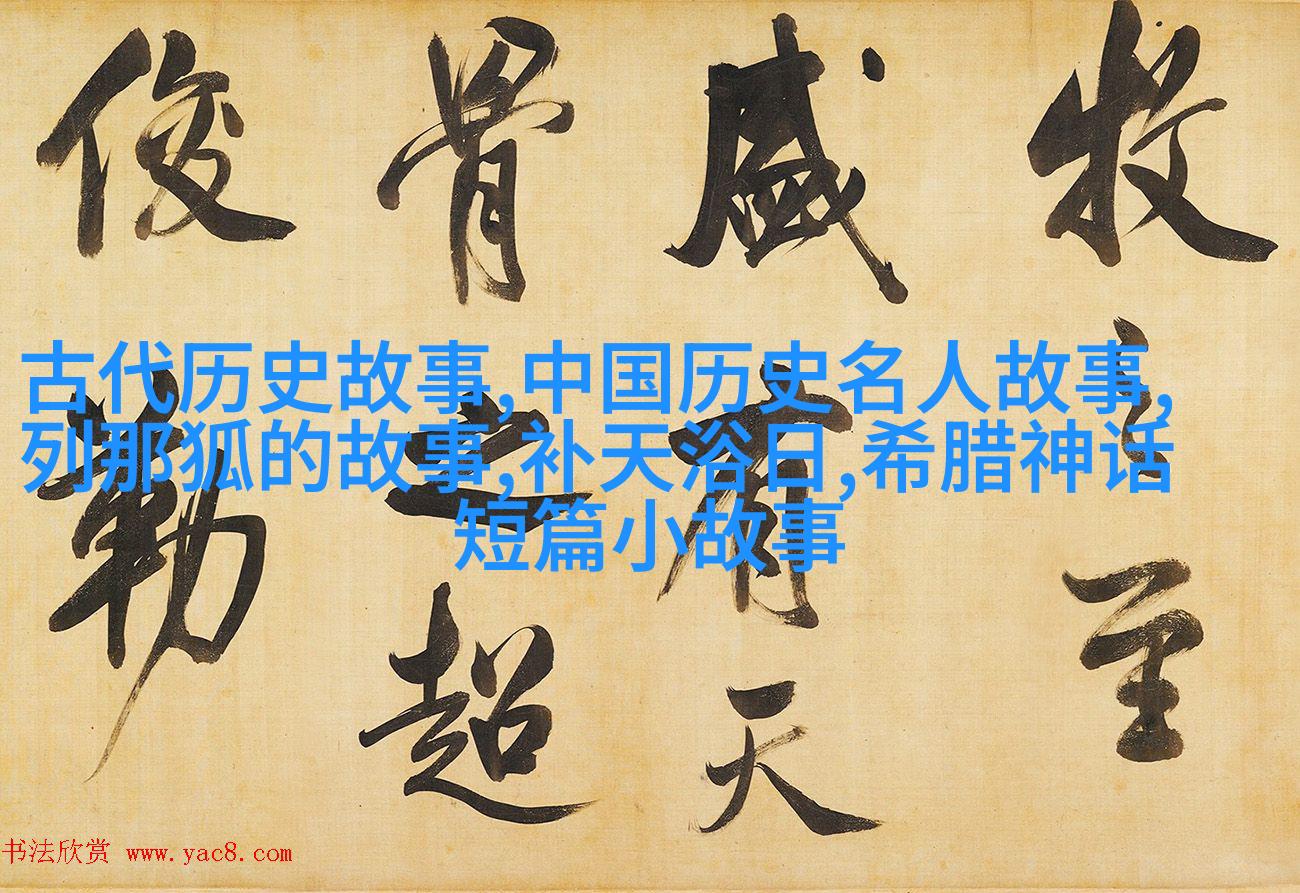 牧之至
盛有天
骨之超
俊勒
古代历史故事,中国历史名人故事,
列那狐的故事,补天浴日,希腊神话
短篇小故事
书法欣赏 www.yac8.com